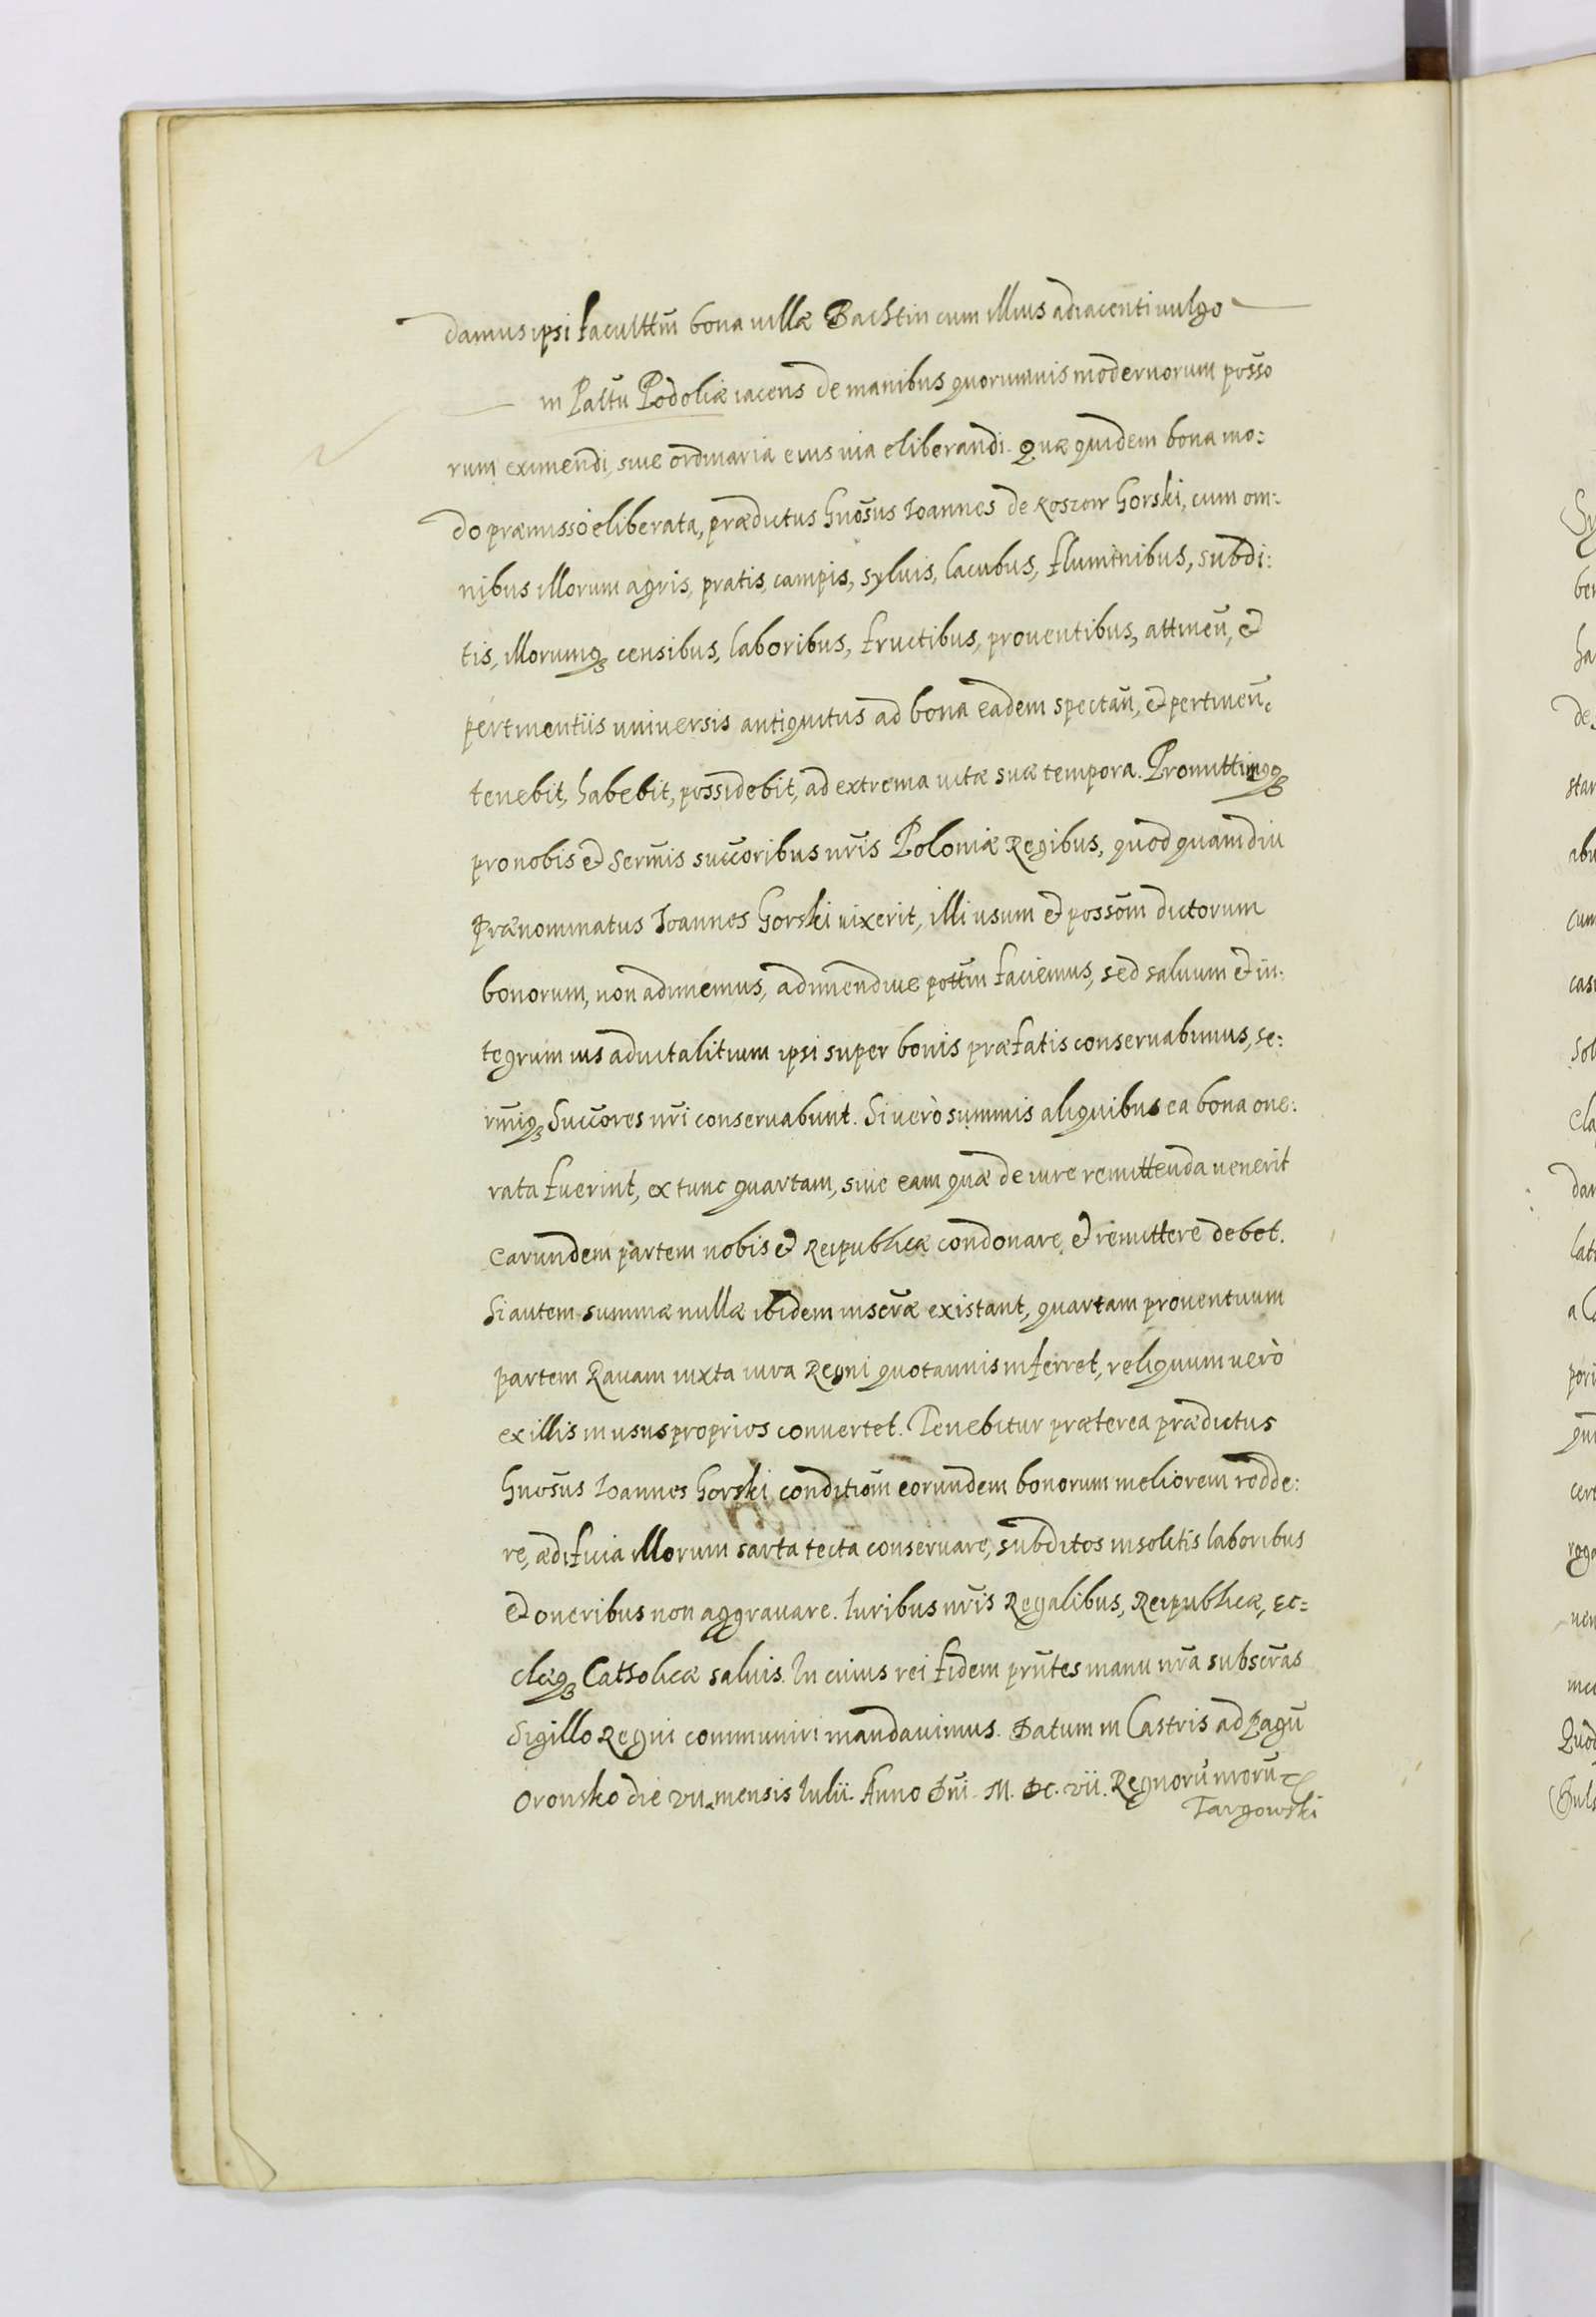 damus ipsi facultt̄m bona villæ Bachtin cum illius adiacenti vulgo
in Paltū Podoliæ iacens de manibus quorumvis modernorum poss̄o
rum eximendi, sive ordinaria eius via eliberandi. Quæ quidem bona mo:
do præmisso eliberata, prædictus Gnōsus Ioannes de Koszow Gorski, cum om:
nibus illorum agris, pratis, campis, sylvis, lacubus, fluminibus, subdi:
tis, illorumq; censibus, laboribus, fructibus, proventibus, attineñ, et
pertinentiis universis antiquitus ad bona eadem spectañ, et pertineñ,
tenebit, habebit, possidebit, ad extrema vitæ suæ tempora. Promittimq;
pro nobis et Serm̄is succ̄oribus nr̄is Poloniæ Regibus, quod quamdiu
prænominatus Ioannes Gorski vixerit, illi usum et possōm dictorum
bonorum, non adimemus, adimendive potttm̄ faciemus, sed salvum et in:
tegrum ius advitalitium ipsi super bonis præfatis conservabimus, se:
rmīq; Succ̄ores nr̄i conservabunt. Si verò summis aliquibus ea bona one:
rata fuerint, ex tunc quartam, sive eam quæ de iure remittenda venerit
earundem partem nobis et Reipublicæ condonare et remittere debet.
Si autem summæ nullæ ibidem inscr̄æ existant, quartam proventuum
partem Ravam iuxta iura Regni quotannis inferret, reliquum verò
ex illis in usus proprios convertet. Tenebitur præterea prædictus
Gnōsus Ioannes Gorski conditiōm eorundem bonorum meliorem redde:
re, ædificia illorum sarta tecta conservare, subditos insolitis laboribus
et oneribus non aggravare. Iuribus nr̄is Regalibus, Reipublicæ, Ec:
clæq; Catholicæ salvis. In cuius rei fidem prn̄tes manu nr̄a subscr̄as
Sigillo Regni communiri mandavimus. Datum in Castris ad Pagū
Oronsko die vii mensis Iulii. Anno Dn̄i. M. DC. vii. Regnorū nrorū
Targowski